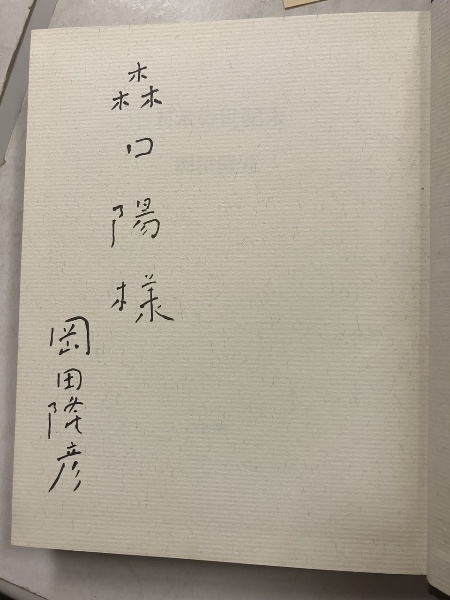 森口陽様
岡田隆彦